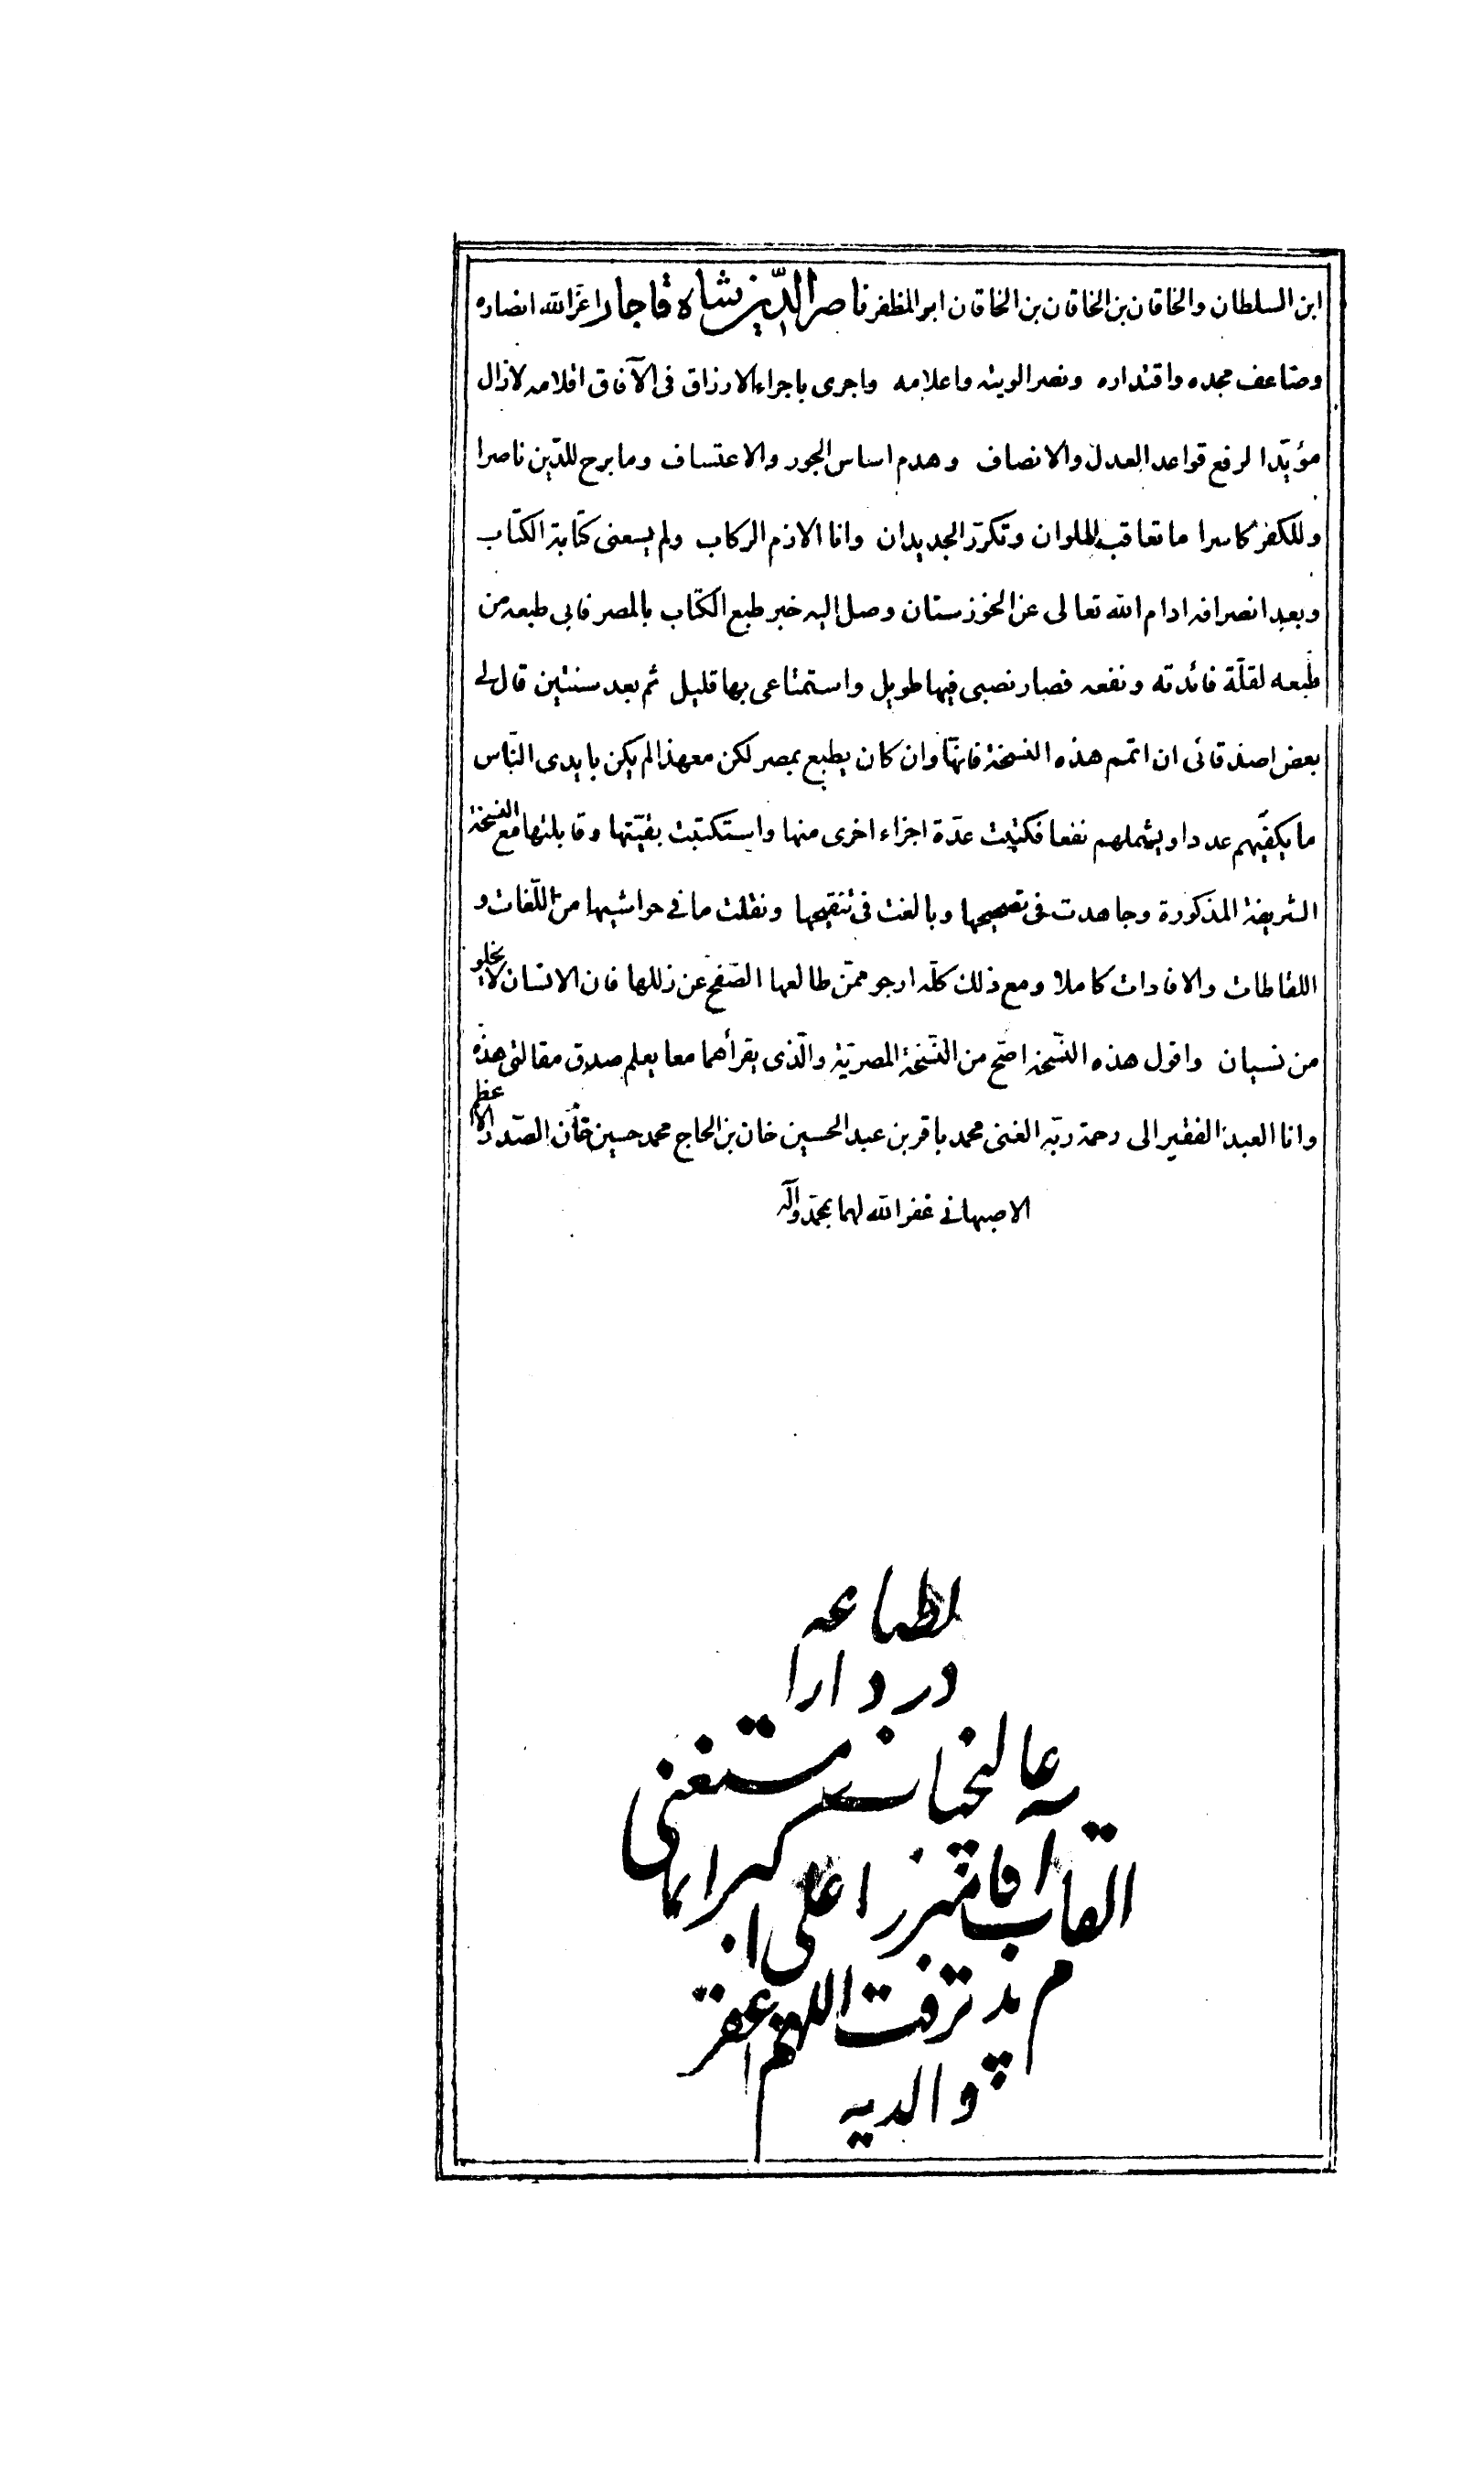 ابن السلطان والخاقان بن الخاقان بن الخاقان ابو المظفر ناصر الدّين شاه قاجار اعزّ الله انصاره
وضاعف مجده واقتداره ونصر الويته واعلامه واجرى باجراء الارزاق فى الآفاق اقلامه لازال
مؤيّدا لرفع قواعد العدل والانصاف وهدم اساس الجور والاعتساف وما برح للدّين ناصرا
وللكفر كاسرا ما تعاقب الملوان وتكرّر الجديدان وانا الازم الركاب ولم يسعنى كتابة الكتاب
وبعد انصرافه ادام الله تعالى عن الخوزستان وصل اليه خبر طبع الكتاب بالمصر فابى طبعه من
طبعه لقلّة فائدته ونفعه فصار نصبى فيها طويل واستمتاعى بها قليل ثم بعد سنتين قال لے
بعض اصدقائى ان اتمم هذه النسخة فانها وان كان يطبع بمصر لكن معهذا لم يكن بايدى النّاس
ما يكفيهم عددا ويشملهم نفعا فكتبت عدّة اجزاء اخرى منها واستكتبت بقيّتها وقابلتها مع النسخة
الشريفة المذكورة وجاهدت فى تصحيحها وبالغت فى تنقيحها ونقلت ما فے حواشيها من اللّغات و
اللقاطات والافادات كاملا ومع ذلك كلّه ارجو ممّن طالعها الصّفح عن زللها فان الانسان لا يخلو
من نسيان واقول هذه النّسخة اصّح من النّسخة المصريّة والّذى يقرأهما معا يعلم صدق مقالتى هذه
وانا العبد الفقير الى رحمة ربّه الغنى محمد باقر بن عبد الحسين خان بن الحاج محمد حسين خان الصّدر الاعظم
الاصبهانے غفر الله لهما بمحمّد وآله
لطباعه
در دارا
عاليجاه مستغنى
القاب آقا ميرزا على اكبر
پذيرفت اللهم اغفر
والديه